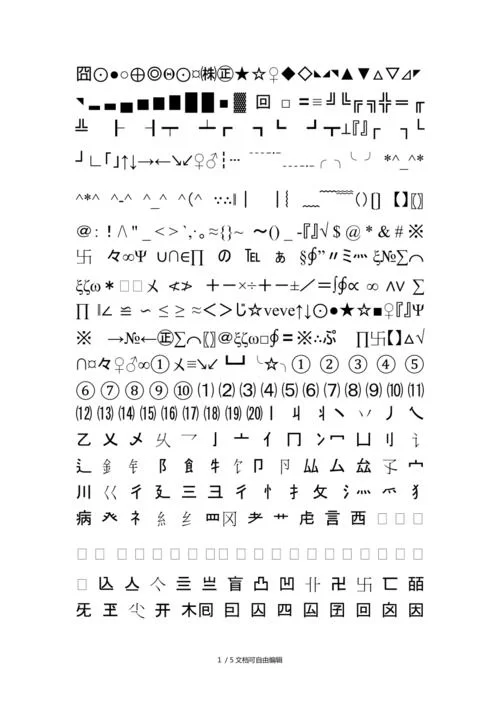 囧⊙●○⊕◎Θ⊙¤㈱㊣★☆♀◆◇◣◢◥▲▼△▽⊿◤
◥▂▃▄▅▆▇██■▓ 回 □ 〓≡╝╚╔╗╬═╓
╩ ┠ ┨┯ ┷┏ ┓┗ ┛┳⊥『』┌ ┐└
┘∟「」↑↓→←↘↙♀♂┇┅ ﹉﹊﹍﹎╭ ╮╰ ╯ *^_^*
^*^ ^-^ ^_^ ^(^ ∵∴‖│ ︴ ﹏﹋﹌()〔〕 【】〖〗
@:!/\ " _ < > `,·。≈{}~ ~() _ -『』√ $ @ * & # ※
卐 々∞Ψ ∪∩∈∏ の ℡ ぁ §∮”〃ミ灬 ξ№∑⌒
ξζω*□□〤 ≮≯ +-×÷+-±/=∫∮∝ ∞ ∧∨ ∑
∏ ‖∠ ≌ ∽ ≤ ≥ ≈<>じ☆veve↑↓⊙●★☆■♀『』Ψ
※ →№←㊣∑⌒〖〗@ξζω□∮〓※∴ぷ ∏卐【】△√
∩¤々♀♂∞①〤≡↘↙┗┛╰☆╮① ② ③ ④ ⑤
⑥ ⑦ ⑧ ⑨ ⑩ ⑴ ⑵ ⑶ ⑷ ⑸ ⑹ ⑺ ⑻ ⑼ ⑽ ⑾
⑿ ⒀ ⒁ ⒂ ⒃ ⒄ ⒅ ⒆ ⒇丨 丩 丬丶 丷 丿 乀
乙 乂 乄 乆 乛 亅 亠 亻 冂 冫冖 凵 刂 讠
辶 釒 钅 阝 飠 牜 饣 卩 卪 厸 厶 厽 孓 宀
川 巜 彳 廴 三 彐 彳 忄 扌 攵 氵灬 爫 犭
病 癶 礻 糹 纟 罒冈 耂 艹 虍 言 西 □ □ □
□ □ □ □ □ □ □ □ □ □ □ □ □ □ □ □
□ 兦 亼 亽 亖 亗 吂 凸 凹 卝 卍 卐 匸 皕
旡 玊 尐 幵 朩囘 囙 囚 四 囜 囝 回 囟 因
1 / 5文档可自由编辑